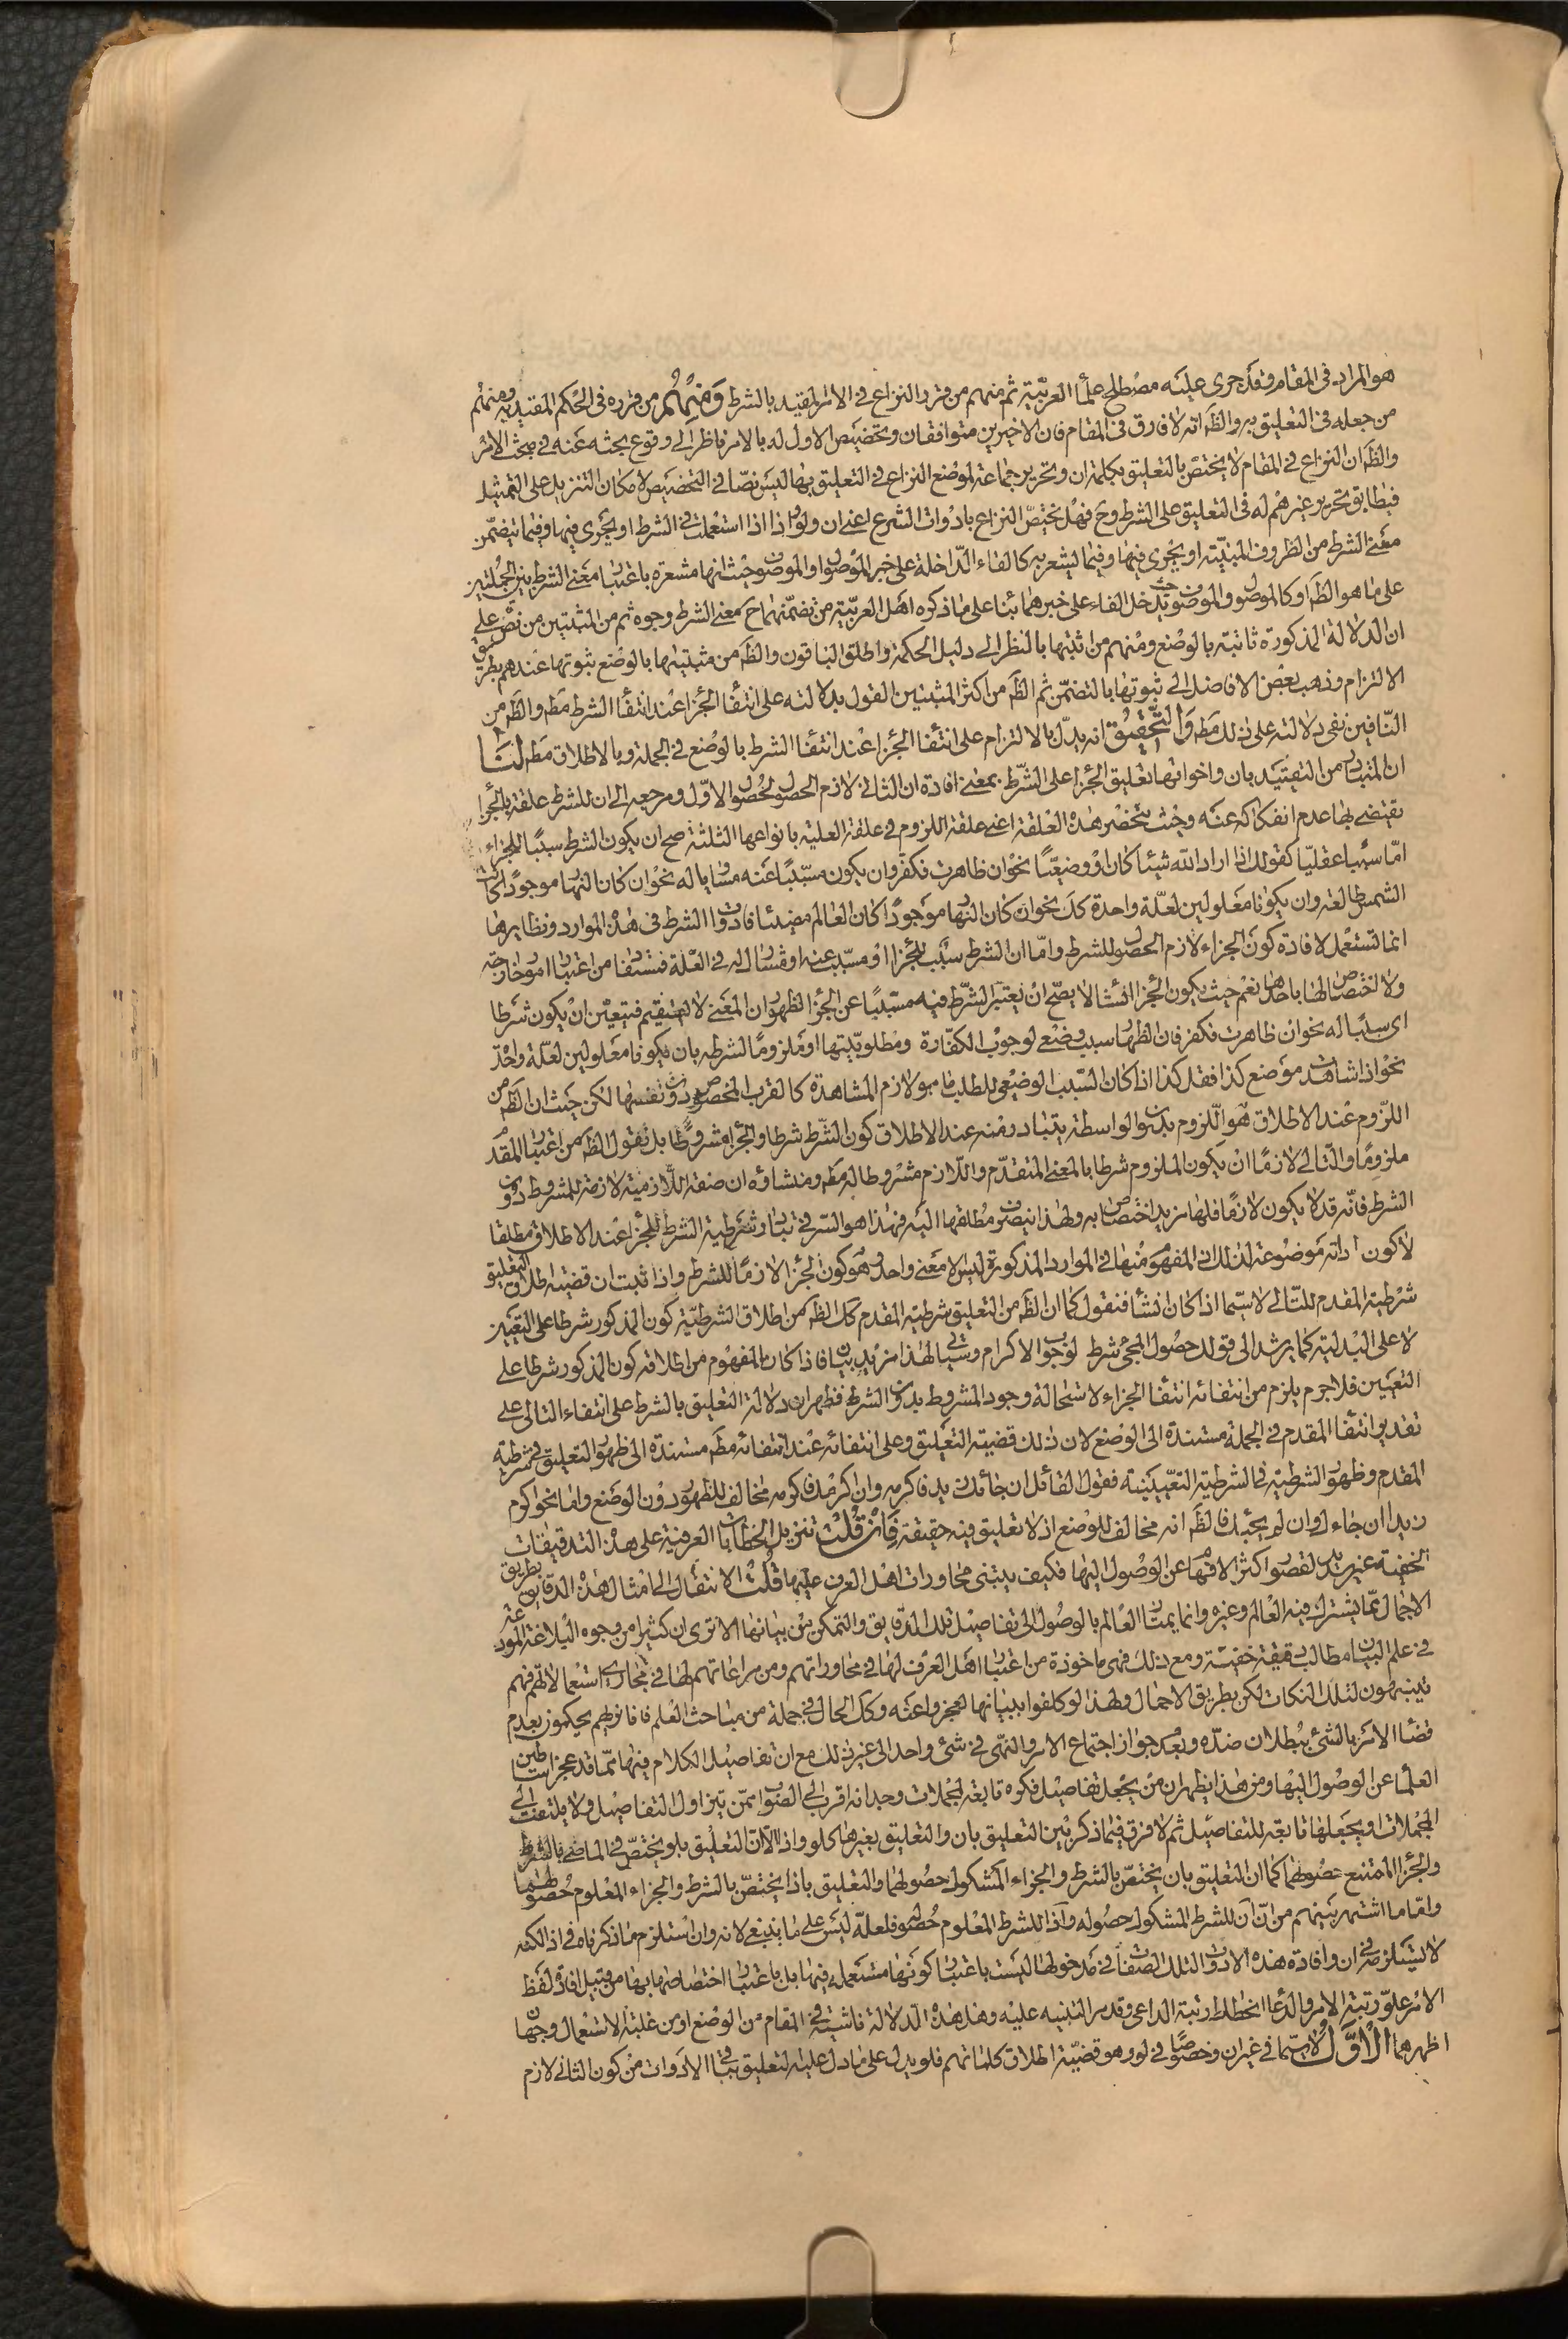 هو المراد فى المقام وقد جرى عليه مصطلح علماء العربية ثم منهم من قرر النزاع فى الامر المقيد بالشرط ومنهم من قرره فى الحكم المقيد به ومنهم
من جعله فى التعليق به والظ انه لا فارق فى المقام فان الاخيرين متوافقان وتخصيص الاول له بالامر ناظر الى وقوع بحثه عنه فى مبحث الامر
والظ ان النزاع فى المقام لا يختص بالتعليق بكلمة ان وتحرير جماعة لموضع النزاع فى التعليق بها ليس نصا فى التخصيص لامكان التنزيل على التمثيل
فيطابق تحرير غيرهم له فى التعليق على الشرط وح فهل يختص النزاع بادوات الشرع اعنى ان ولو واذا اذا استعملت فى الشرط او يجرى فيها وفيما تيضمن
معنى الشرط من الظروف المبنية او يجرى فيها وفيما يشعر به كالفاء الداخلة على خبر الموصول او الموصوف حيث انها مشعرة باعتبار معنى الشرط بين الجملتين
على ما هو الظ او كالموصول والموصوف حيث يدخل الفاء على خبرهما بناء على ما ذكره اهل العربية من تضمنهما ح معنى الشرط وجوه ثم من المثبتين من نص على
ان الدلالة المذكورة ثابتة بالوضع ومنهم من اثبتها بالنظر الى دليل الحكمة واطلق الباقون والظ من مثبتيها بالوضع ثبوتها عندهم بطريق
الالتزام وذهب بعض الافاضل الى ثبوتها بالتضمن ثم الظ من اكثر المثبتين القول بدلالته على انتفاء الجزاء عند انتفاء الشرط مط والظ من
النافين نفى دلالته على ذلك مط والتحقيق انه يدل بالالتزام على انتفاء الجزاء عند انتفاء الشرط بالوضع فى الجملة وبالاطلاق مط لنا
ان المتبادر من التقييد بان واخواتها تعليق الجزاء على الشرط بمعنى افادة ان الثانى لازم الحصول لحصول الاول ومرجعه الى ان للشرط علقة بالجزاء
يقتضى بها عدم انفكاكه عنه وحيث ينحصر هذه العلقة اعنى علقة اللزوم فى علقة العلية بانواعها الثلثة صح ان يكون الشرط سببا للجزاء
اما سببا عقليا كقولك اذا اراد الله شيئا كان او وضعيا نحو ان ظاهرت فكفر وان يكون مسببا عنه مساويا له نحو ان كان النهار موجودا كانت
الشمس طالعة وان يكونا معلولين لعلة واحدة كك نحو ان كان النهار موجودا كان العالم مضيئا فادوات الشرط فى هذه الموارد ونظايرها
انما تستعمل لافادة كون الجزاء لازم الحصول للشرط واما ان الشرط سبب للجزاء او مسبب عنه او مشارك له فى العلة فمستفاد من اعتبار امور خارجة
ولا اختصاص لها باحدها نعم حيث يكون الجزاء انشاء لا يصح ان يعتبر الشرط فيه مسببا عن الجزاء لظهور ان المعنى لا يستقيم فيتعين ان يكون شرطا
اى سببا له نحو ان ظاهرت فكفر فان الظهار سبب وضعى لوجوب الكفارة ومطلوبيتها او ملزوما لشرطه بان يكونا معلولين لعلة واحدة
نحو اذا شاهدت موضع كذا فقل كذا اذا كان السبب الوضعى للطلب ما هو لازم المشاهدة كالقرب المخصوص دون نفسها لكن حيث ان الظ من
اللزوم عند الاطلاق هو اللزوم بدون الواسطة يتبادر منه عند الاطلاق كون الشرط شرطا والجزاء مشروطا بل نقول الظ من اعتبار المقدم
ملزوما والتالى لازما ان يكون الملزوم شرطا بالمعنى المتقدم واللازم مشروطا له مط ومنشاؤه ان صفة اللازمية لازمة للمشروط دون
الشرط فانه قد لا يكون لازما فلها مزيد اختصاص به ولهذا ينصرف مطلقها اليه فهذا هو السر فى تبادر شرطية الشرط للجزاء عند الاطلاق مطلقا
لا كون اداته موضوعة لذلك اذ المفهوم منها فى الموارد المذكورة ليس الا معنى واحد وهو كون الجزاء لازما للشرط واذا ثبت ان قضية اطلاق التعليق
شرطية المقدم للتالى لا سيما اذا كان انشاء فنقول كما ان الظ من التعليق شرطية المقدم كك الظ من اطلاق الشرطية كون المذكور شرطا على التعيين
لا على البدلية كما يرشد اليه قولك حصول المجئ شرط لوجوب الاكرام وسيأتى لهذا مزيد بيان فاذا كان المفهوم من اطلاقه كون المذكور شرطا على
التعيين فلا جرم يلزم من انتفائه انتفاء الجزاء لاستحالة وجود المشروط بدون الشرط فظهر ان دلالة التعليق بالشرط على انتفاء التالى على
تقدير انتفاء المقدم فى الجملة مستندة الى الوضع لان ذلك قضية التعليق وعلى انتفائه عند انتفائه مط مستندة الى ظهور التعليق فى شرطية
المقدم وظهور الشرطية فى الشرطية التعيينية فقول القائل ان جائك زيد فاكرمه وان اكرمك فاكرمه مخالف للظهور دون الوضع واما نحو اكرم
زيدا ان جاءك وان لم يجئك فالظ انه مخالف للوضع اذ لا تعليق فيه حقيقة فان قلت تنزيل الخطابات العرفية على هذه التدقيقات
الخفية غير سديد لقصور اكثر الافهام عن الوصول اليها فكيف يبتنى محاورات اهل العرف عليها قلت الانتقال الى امثال هذه الدقايق بطريق
الاجمال مما يشترك فيه العالم وغيره وانما يمتاز العالم بالوصول الى تفاصيل تلك الدقايق والتمكن من بيانها الا ترى ان كثيرا من وجوه البلاغة المودعة
فى علم البيان مطالب دقيقة خفية ومع ذلك فهى ماخوذة من اعتبار اهل العرف لها فى محاوراتهم ومن مراعاتهم لها فى مجارى استعمالاتهم فهم
يتنبهون لتلك النكات لكن بطريق الاجمال ولهذا لو كلفوا ببيانها لعجزوا عنه وكك الحال فى جملة من مباحث العلم فانا نريهم يحكمون بعدم
قضاء الامر بالشئ ببطلان ضده وبعدم جواز اجتماع الامر والنهى فى شئ واحد الى غير ذلك مع ان تفاصيل الكلام فيها مما قد عجز اساطين
العلماء عن الوصول اليها ومن هذا يظهر ان من يجعل تفاصيل فكره تابعة لمجملات وجدانه اقرب الى الصواب ممن يزاول التفاصيل ولا يلتفت الى
المجملات او يجعلها تابعة للتفاصيل ثم لا فرق فيما ذكر بين التعليق بان والتعليق بغيرها كلو واذا الا ان التعليق بلو يختص فى الماضى بالشرط
والجزاء الممتنع حصولهما كما ان التعليق بان يختص بالشرط والجزاء المشكوك حصولهما والتعليق باذا يختص بالشرط والجزاء المعلوم حصولهما
واما ما اشتهر بينهم من ان ان للشرط المشكوك حصوله واذا للشرط المعلوم حصوله فلعله ليس على ما ينبغى لانه وان استلزم ما ذكرناه فى اذا لكنه
لا يستلزمه فى ان وافادة هذه الادوات لتلك الصفات فى مدخولها ليست باعتبار كونها مستعملة فيها بل باعتبار اختصاصها بها من قبيل افادة لفظ
الامر علو رتبة الامر والدعاء انحطاط رتبة الداعى وقد مر التنبيه عليه وهل هذه الدلالة ناشئة فى المقام من الوضع او من غلبة الاستعمال وجهان
اظهرهما الاول لا سيما فى غير ان وخصوصا فى لو وهو قضية اطلاق كلماتهم فلو يدل على ما دل عليه لتعليق بباقى الادوات من كون الثانى لازم